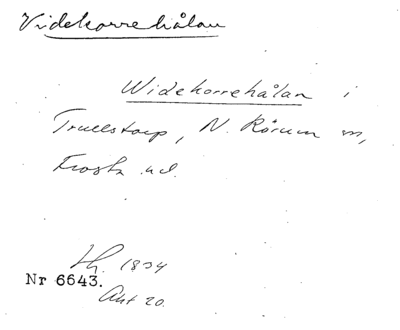 Videkorrehålan
Widekorrehålan i
Trulstorp, N. Rörum sn,
Frosta hd.
Lh. 1834
Nr 6643.
Akt 20.